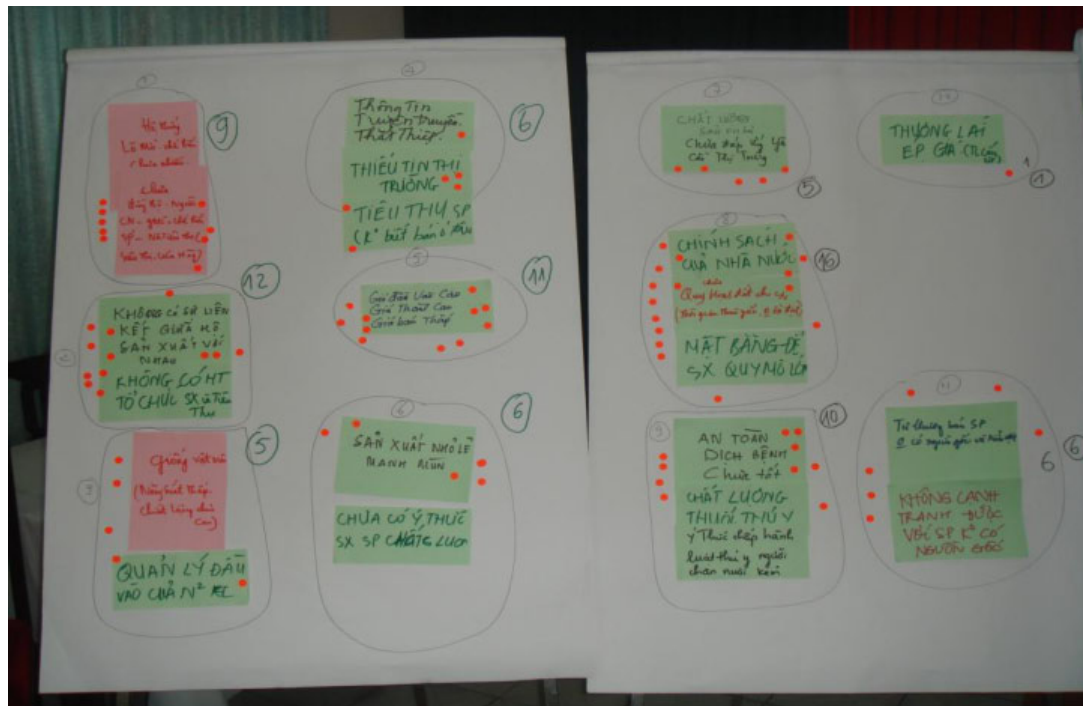 1
9
Hệ thống
chưa
12
KHÔNG CÓ SỰ LIÊN
KẾT GIỮA HỘ
SẢN XUẤT VỚI
NHAU
KHÔNG CÓ HT
TỔ CHỨC SX và Tiêu
Thụ
2
5
Giống vật nuôi
(Năng suất thấp.
Chất lượng chưa
Cao)
3
QUẢN LÝ ĐẦU
VÀO CỦA N²
4
6
Thông Tin
Truyên truyền.
Thất Thiệp.
THIẾU TIN THỊ
TRƯỜNG
TIÊU THỤ SP
(K° biết bán ở đâu
5
11
Giá đầu vào Cao
Giá Thành Cao
Giá bán Thấp
6
6
SẢN XUẤT NHỎ LẺ
MANH MÚN
CHƯA CÓ Ý THỨC
SX SP CHẤT LƯỢN
7
CHẤT LƯỢNG
SẢN PHẨM
Chưa đáp ứng yêu
Cầu Thị Trường
5
12
THƯƠNG LÁI
ÉP GIÁ
1
1
8
CHÍNH SÁCH
CỦA NHÀ NƯỚC
16
chưa
Quy Hoạch đất
MẶT BẰNG ĐỂ
SX QUY MÔ LỚN
9
10
AN TOÀN
DỊCH BỆNH
Chưa tốt
CHẤT LƯỢNG
THUỐC THÚ Y
Ý Thức chấp hành
luật thú y người
chăn nuôi kém
11
Từ thương lái SP
KHÔNG CẠNH
TRANH ĐƯỢC
VỚI SP K° CÓ
NGUỒN GỐC
6
6